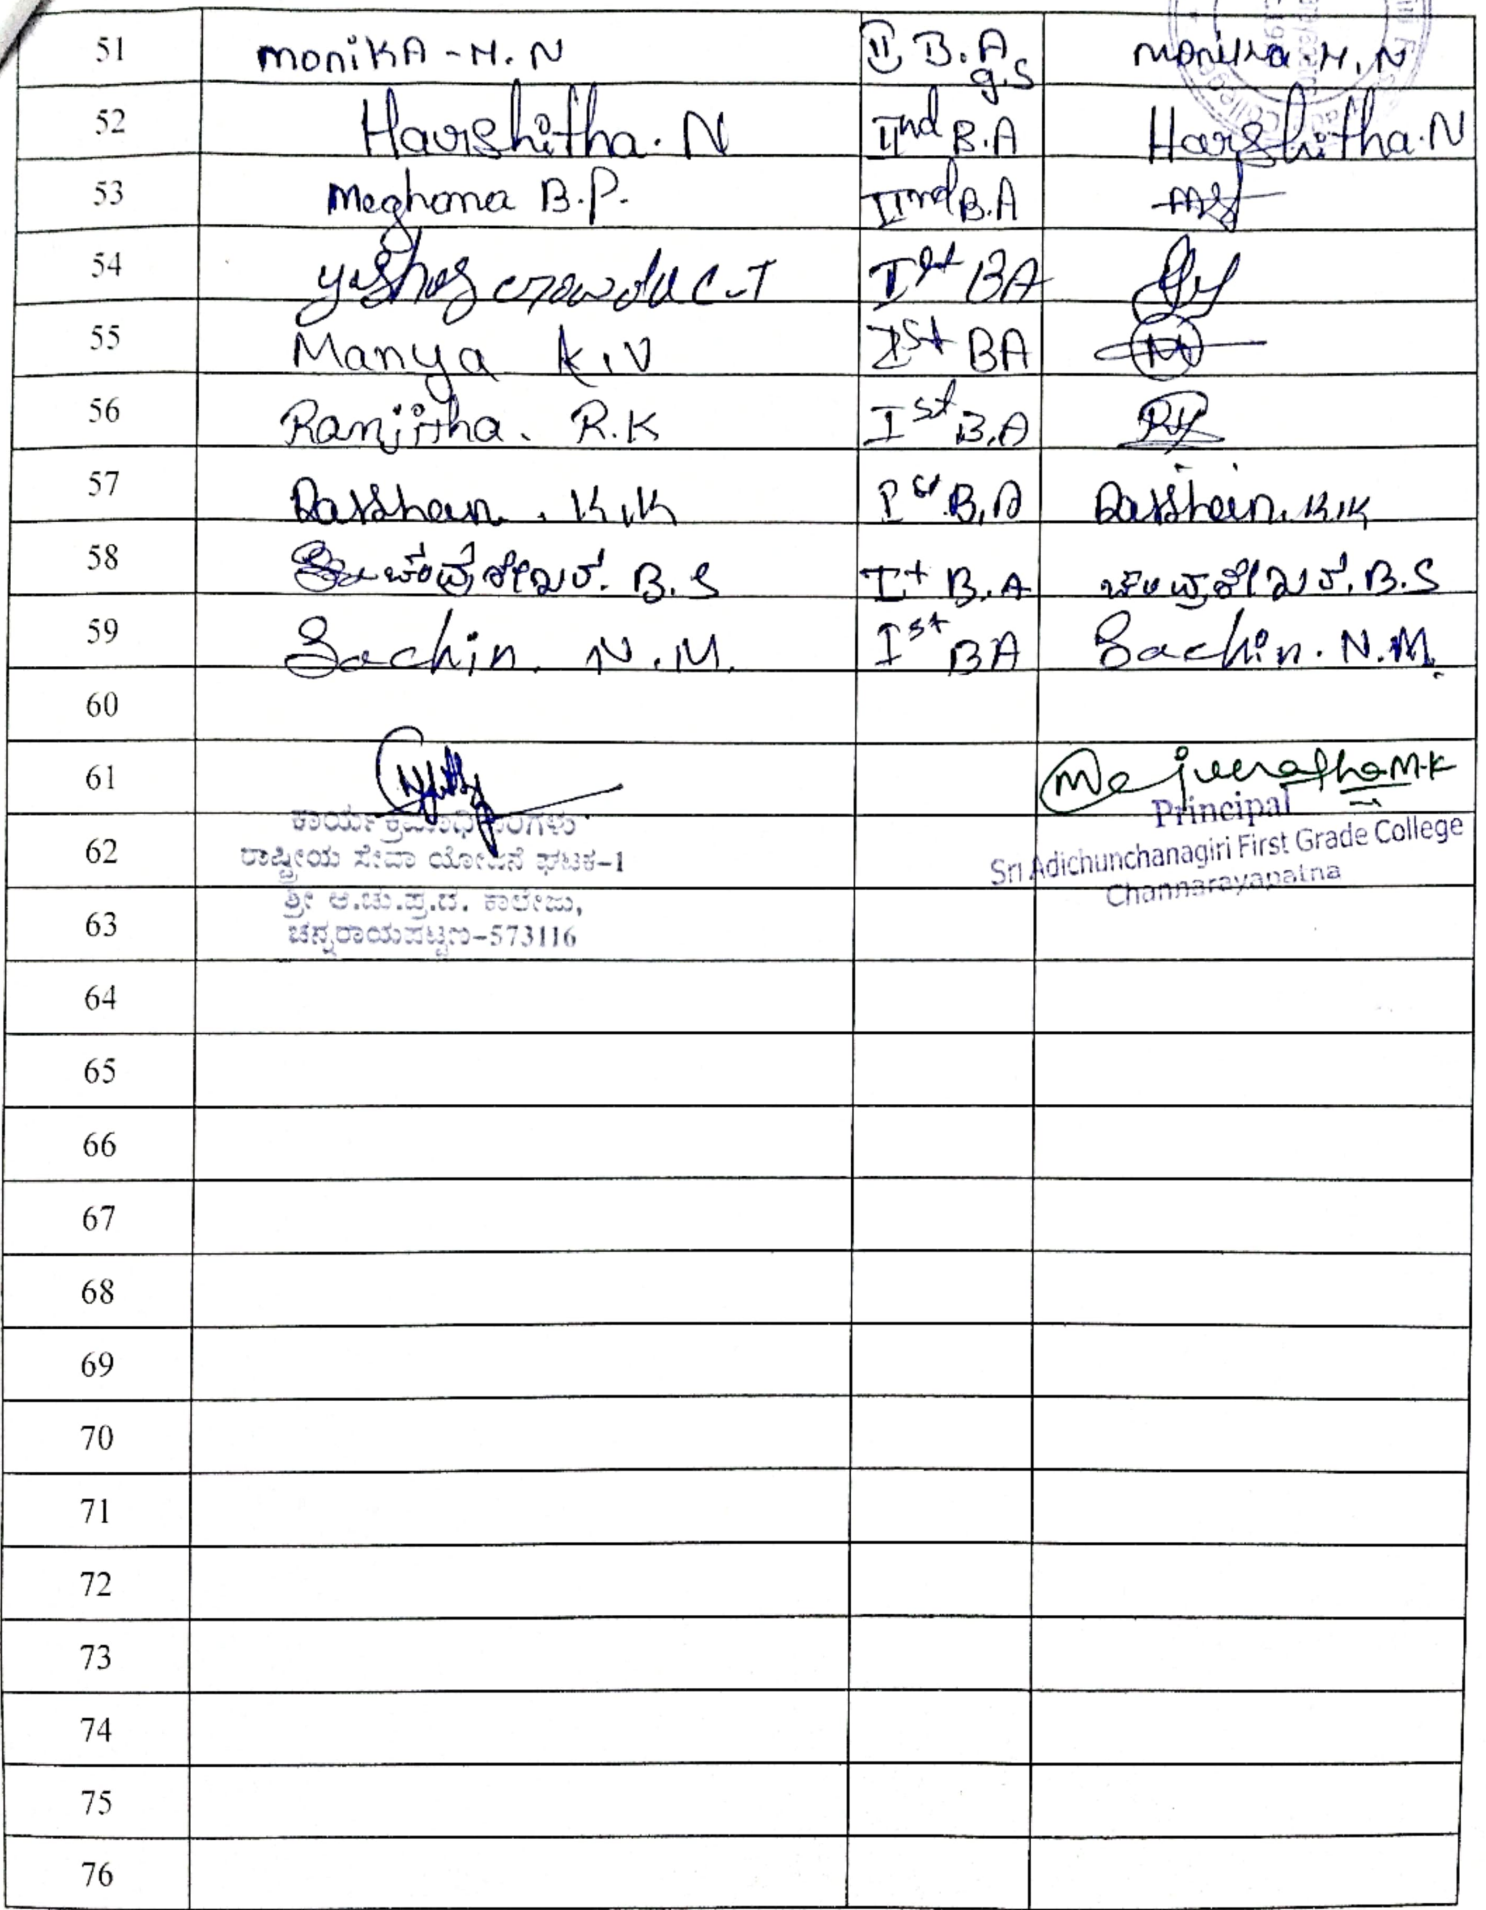 51 moniKA - H. N II B.A g.s monika. H. N
52 Harshitha. N IInd B.A Harshitha. N
53 Meghana B.P. IInd B.A
54 C-T Ist BA
55 Manya K.V Ist BA M
56 Ranjitha. R.K Ist B.A RK
57 Darshan. K.K Ist B.A Darshan. K.K
58 ಚಂದ್ರಶೇಖರ್. B.S Ist B.A ಚಂದ್ರಶೇಖರ್. B.S
59 Sachin. N.M. Ist BA Sachin. N.M.
60
61 M.K
Principal
62 ರಾಷ್ಟ್ರೀಯ ಸೇವಾ ಯೋಜನೆ ಘಟಕ-1 Sri Adichunchanagiri First Grade College
Channarayapatna
ಶ್ರೀ ಆ.ಚು.ಪ್ರ.ದ. ಕಾಲೇಜು,
63
ಚನ್ನರಾಯಪಟ್ಟಣ-573116
64
65
66
67
68
69
70
71
72
73
74
75
76